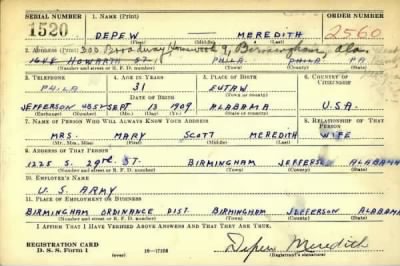 SERIAL NUMBER 1. NAME (Print) ORDER NUMBER
1520 DEPEW MEREDITH 2560
(First) (Middle) (Last)
2. ADDRESS (Print) 300 Broadway, Homewood 9, Birmingham, Ala.
1648 HOWARTH ST. PHILA. PHILA PA
(Number and street or R. F. D. number) (Town) (County) (State)
3. TELEPHONE 4. AGE IN YEARS 5. PLACE OF BIRTH 6. COUNTRY OF CITIZENSHIP
PHILA 31 EUTAW
DATE OF BIRTH (Town or county)
JEFFERSON SEPT 13 1909 ALABAMA U.S.A.
(Exchange) (Number) (Mo.) (Day) (Yr.) (State or country)
7. NAME OF PERSON WHO WILL ALWAYS KNOW YOUR ADDRESS 8. RELATIONSHIP OF THAT PERSON
MRS. MARY SCOTT MEREDITH WIFE
(Mr., Mrs., Miss) (First) (Middle) (Last)
9. ADDRESS OF THAT PERSON
1225 S. 29TH ST. BIRMINGHAM JEFFERSON ALABAMA
(Number and street or R. F. D. number) (Town) (County) (State)
10. EMPLOYER'S NAME
U.S. ARMY
11. PLACE OF EMPLOYMENT OR BUSINESS
BIRMINGHAM ORDINANCE DIST. BIRMINGHAM JEFFERSON ALABAMA
(Number and street or R. F. D. number) (Town) (County) (State)
I AFFIRM THAT I HAVE VERIFIED ABOVE ANSWERS AND THAT THEY ARE TRUE.
REGISTRATION CARD
D. S. S. Form 1 (over) Depew Meredith
(Registrant's signature)